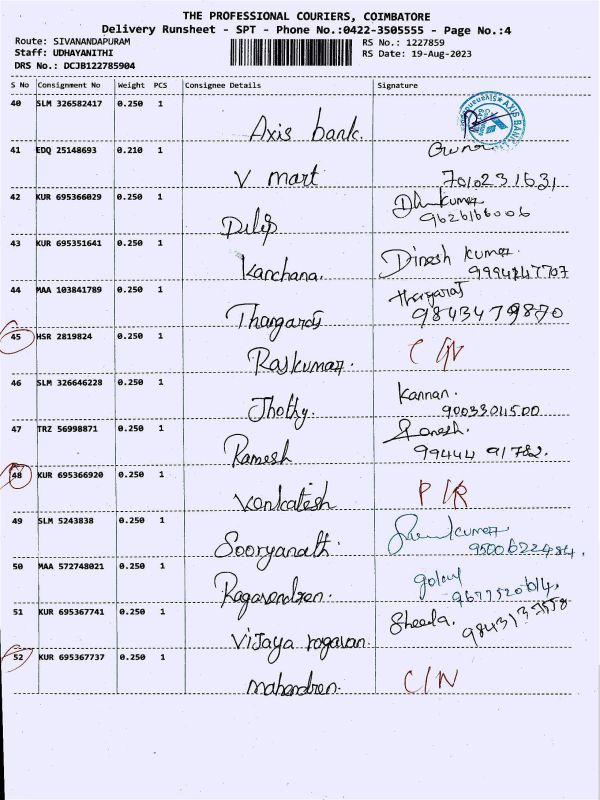 THE PROFESSIONAL COURIERS, COIMBATORE
Delivery Runsheet - SPT - Phone No.:0422-3505555 - Page No.:4
Route: SIVANANDAPURAM RS No.: 1227859
Staff: UDHAYANITHI RS Date: 19-Aug-2023
DRS No.: DCJB122785904
S No Consignment No Weight PCS Consignee Details Signature
40 SLM 326582417 0.250 1
Axis bank.
AXIS BANK
41 EDQ 25148693 0.210 1
V mart 7010231631
42 KUR 695366029 0.250 1
Dilip 9626166006
43 KUR 695351641 0.250 1 Dinesh kumar.
Kanchana.
44 MAA 103841789 0.250 1 Thangaraj
Thangaraj 9843479870
45 HSR 2819824 0.250 1
Rajkumar. C/N
46 SLM 326646228 0.250 1 Kannan.
Jhothy.
47 TRZ 56998871 0.250 1 Ganesh.
Ramesh 99444 91782.
48 KUR 695366920 0.250 1 P/R
Venkatesh
49 SLM 5243838 0.250 1
Sooryanath. 9500622484.
50 MAA 572748021 0.250 1
Ragavendren.
51 KUR 695367741 0.250 1 Sheela.
Vijaya ragavan
52 KUR 695367737 0.250 1
Mahendren. C/N